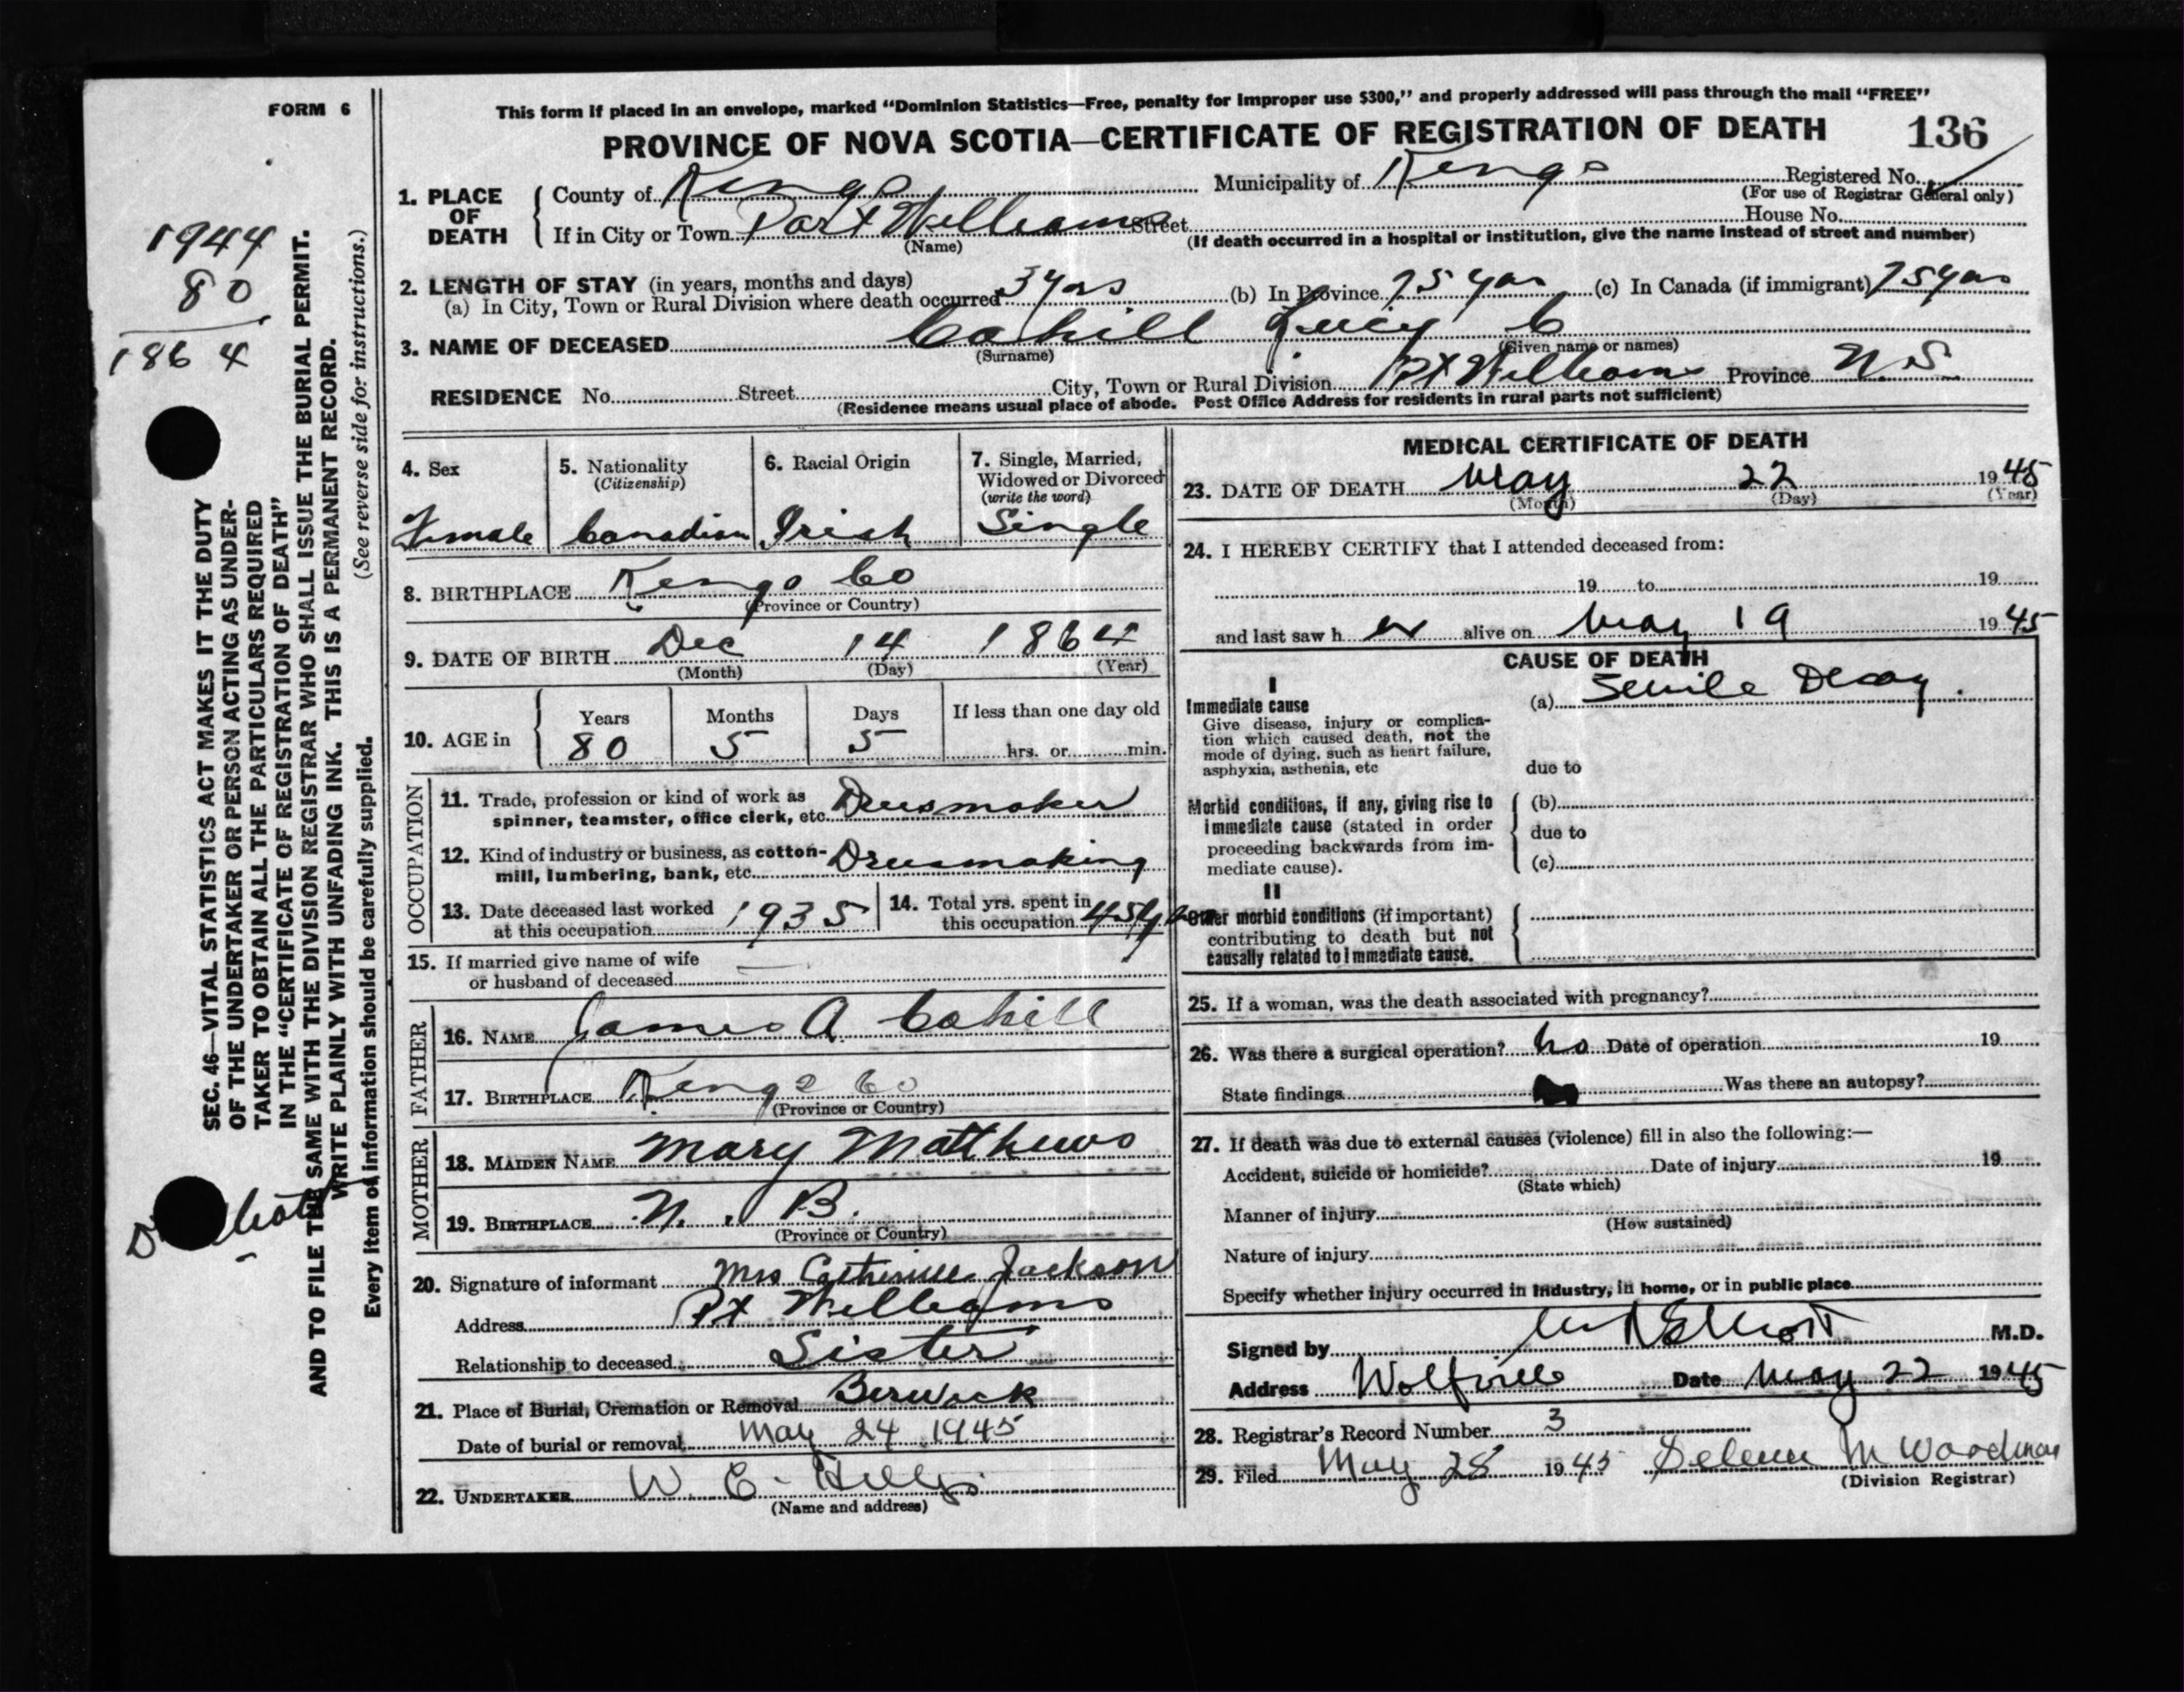 FORM 6
This form if placed in an envelope, marked "Dominion Statistics—Free, penalty for improper use $300," and properly addressed will pass through the mail "FREE"
PROVINCE OF NOVA SCOTIA—CERTIFICATE OF REGISTRATION OF DEATH 136
1. PLACE OF DEATH
County of Kings Municipality of Kings Registered No.
(For use of Registrar General only)
If in City or Town Port Williams Street House No.
(Name) (If death occurred in a hospital or institution, give the name instead of street and number)
2. LENGTH OF STAY (in years, months and days)
(a) In City, Town or Rural Division where death occurred 3 yrs (b) In Province 75 yrs (c) In Canada (if immigrant) 75 yrs
3. NAME OF DECEASED Cahill Lucy C
(Surname) (Given name or names)
RESIDENCE No. Street City, Town or Rural Division Pt Williams Province N.S.
(Residence means usual place of abode. Post Office Address for residents in rural parts not sufficient)
4. Sex
Female
5. Nationality
(Citizenship)
Canadian
6. Racial Origin
Irish
7. Single, Married,
Widowed or Divorced
(write the word)
Single
8. BIRTHPLACE Kings Co
(Province or Country)
9. DATE OF BIRTH Dec 14 1864
(Month) (Day) (Year)
10. AGE in
Years Months Days If less than one day old
80 5 5 hrs. or min.
OCCUPATION
11. Trade, profession or kind of work as
spinner, teamster, office clerk, etc. Dressmaker
12. Kind of industry or business, as cotton-
mill, lumbering, bank, etc. Dressmaking
13. Date deceased last worked
at this occupation 1935
14. Total yrs. spent in
this occupation 45 yrs
15. If married give name of wife
or husband of deceased —
FATHER
16. NAME James A Cahill
17. BIRTHPLACE Kings Co
(Province or Country)
MOTHER
18. MAIDEN NAME Mary Matthews
19. BIRTHPLACE N. B.
(Province or Country)
20. Signature of informant Mrs Catherine Jackson
Address Pt Williams
Relationship to deceased Sister
21. Place of Burial, Cremation or Removal Berwick
Date of burial or removal May 24 1945
22. UNDERTAKER W. C.
(Name and address)
MEDICAL CERTIFICATE OF DEATH
23. DATE OF DEATH May 22 1945
(Month) (Day) (Year)
24. I HEREBY CERTIFY that I attended deceased from:
19 to 19
and last saw her alive on May 19 1945
CAUSE OF DEATH
I
Immediate cause
Give disease, injury or complica-
tion which caused death, not the
mode of dying, such as heart failure,
asphyxia, asthenia, etc
(a) Senile Decay.
due to
Morbid conditions, if any, giving rise to
immediate cause (stated in order
proceeding backwards from im-
mediate cause).
(b)
due to
(c)
II
Other morbid conditions (if important)
contributing to death but not
causally related to immediate cause.
25. If a woman, was the death associated with pregnancy?
26. Was there a surgical operation? no Date of operation 19
State findings Was there an autopsy?
27. If death was due to external causes (violence) fill in also the following:—
Accident, suicide or homicide? Date of injury 19
(State which)
Manner of injury
(How sustained)
Nature of injury
Specify whether injury occurred in industry, in home, or in public place
Signed by Elliott M.D.
Address Wolfville Date May 22 1945
28. Registrar's Record Number 3
29. Filed May 28 1945 M Woodman
(Division Registrar)
1944
80
1864
SEC. 46—VITAL STATISTICS ACT MAKES IT THE DUTY
OF THE UNDERTAKER OR PERSON ACTING AS UNDER-
TAKER TO OBTAIN ALL THE PARTICULARS REQUIRED
IN THE "CERTIFICATE OF REGISTRATION OF DEATH"
AND TO FILE THE SAME WITH THE DIVISION REGISTRAR WHO SHALL ISSUE THE BURIAL PERMIT.
WRITE PLAINLY WITH UNFADING INK. THIS IS A PERMANENT RECORD.
(See reverse side for instructions.)
Every item of information should be carefully supplied.